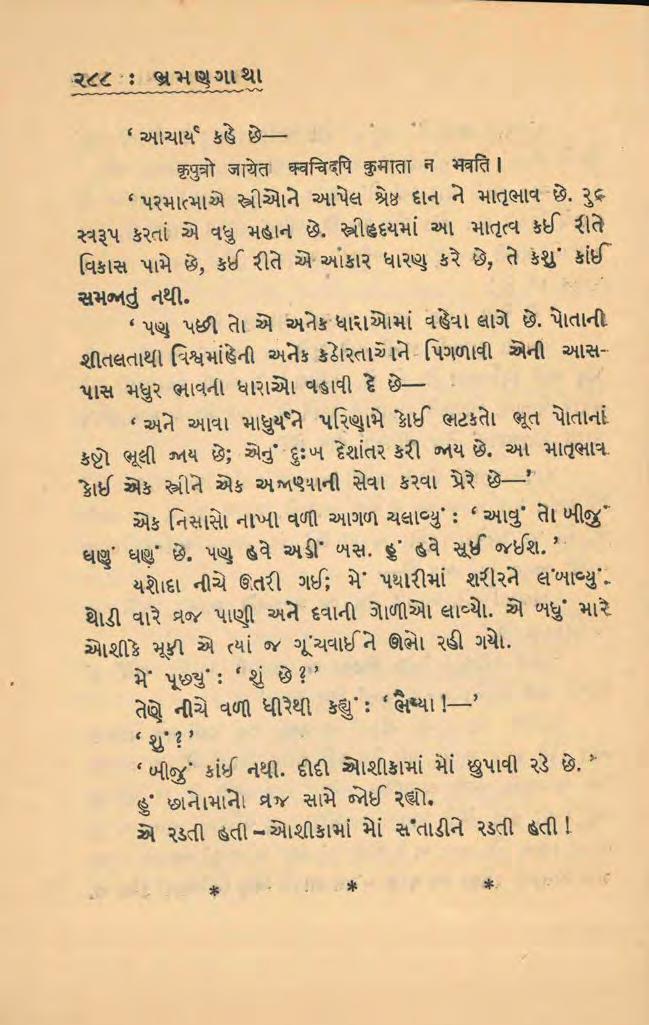 ૨૮૮ : ભ્રમણગાથા
‘ આચાર્ય કહે છે—
कृपुत्रो जायेत क्वचिदपि कुमाता न भवति ।
‘ પરમાત્માએ સ્ત્રીઓને આપેલ શ્રેષ્ઠ દાન ને માતૃભાવ છે. રુદ્ર
સ્વરૂપ કરતાં એ વધુ મહાન છે. સ્ત્રીહૃદયમાં આ માતૃત્વ કઈ રીતે
વિકાસ પામે છે, કઈ રીતે એ આંકાર ધારણ કરે છે, તે કશું કાંઈ
સમજાતું નથી.
‘ પણ પછી તો એ અનેક ધારાઓમાં વહેવા લાગે છે. પોતાની
શીતલતાથી વિશ્વમાંહેની અનેક કઠોરતાઓને પિગળાવી એની આસ-
પાસ મધુર ભાવની ધારાઓ વહાવી દે છે—
‘ અને આવા માધુર્યને પરિણામે કોઈ ભટકતો ભૂત પોતાનાં
કષ્ટો ભૂલી જાય છે; એનું દુઃખ દેશાંતર કરી જાય છે. આ માતૃભાવ
કોઈ એક સ્ત્રીને એક અજાણ્યાની સેવા કરવા પ્રેરે છે—’
એક નિસાસો નાખી વળી આગળ ચલાવ્યું : ‘ આવું તો બીજું
ઘણું ઘણું છે. પણ હવે અહીં બસ. હું હવે સૂઈ જઈશ. ’
યશોદા નીચે ઊતરી ગઈ; મેં પથારીમાં શરીરને લંબાવ્યું.
થોડી વારે વ્રજ પાણી અને દવાની ગોળીઓ લાવ્યો. એ બધું મારે
ઓશીકે મૂકી એ ત્યાં જ ગૂંચવાઈને ઊભો રહી ગયો.
મેં પૂછ્યું : ‘ શું છે ? ’
તેણે નીચે વળી ધીરેથી કહ્યું : ‘ ભૈય્યા !—’
‘ શું ? ’
‘ બીજું કાંઈ નથી. દીદી ઓશીકામાં મોં છુપાવી રડે છે. ’
હું છાનોમાનો વ્રજ સામે જોઈ રહ્યો.
એ રડતી હતી – ઓશીકામાં મોં સંતાડીને રડતી હતી !
* * *